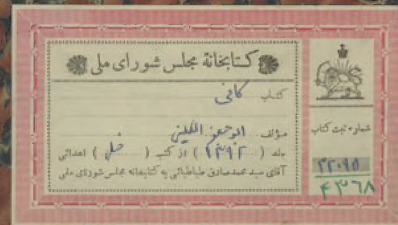 کتابخانهٔ مجلس شورای ملی
کتاب کافی
مؤلف ابوجعفر الکلینی
جلد (۱۳۹۲) از کتب (خطی) اهدائی
آقای سید محمد صادق طباطبائی به کتابخانه مجلس شورای ملی
شماره ثبت کتاب
۲۲۰۹۵
۴۳۶۸